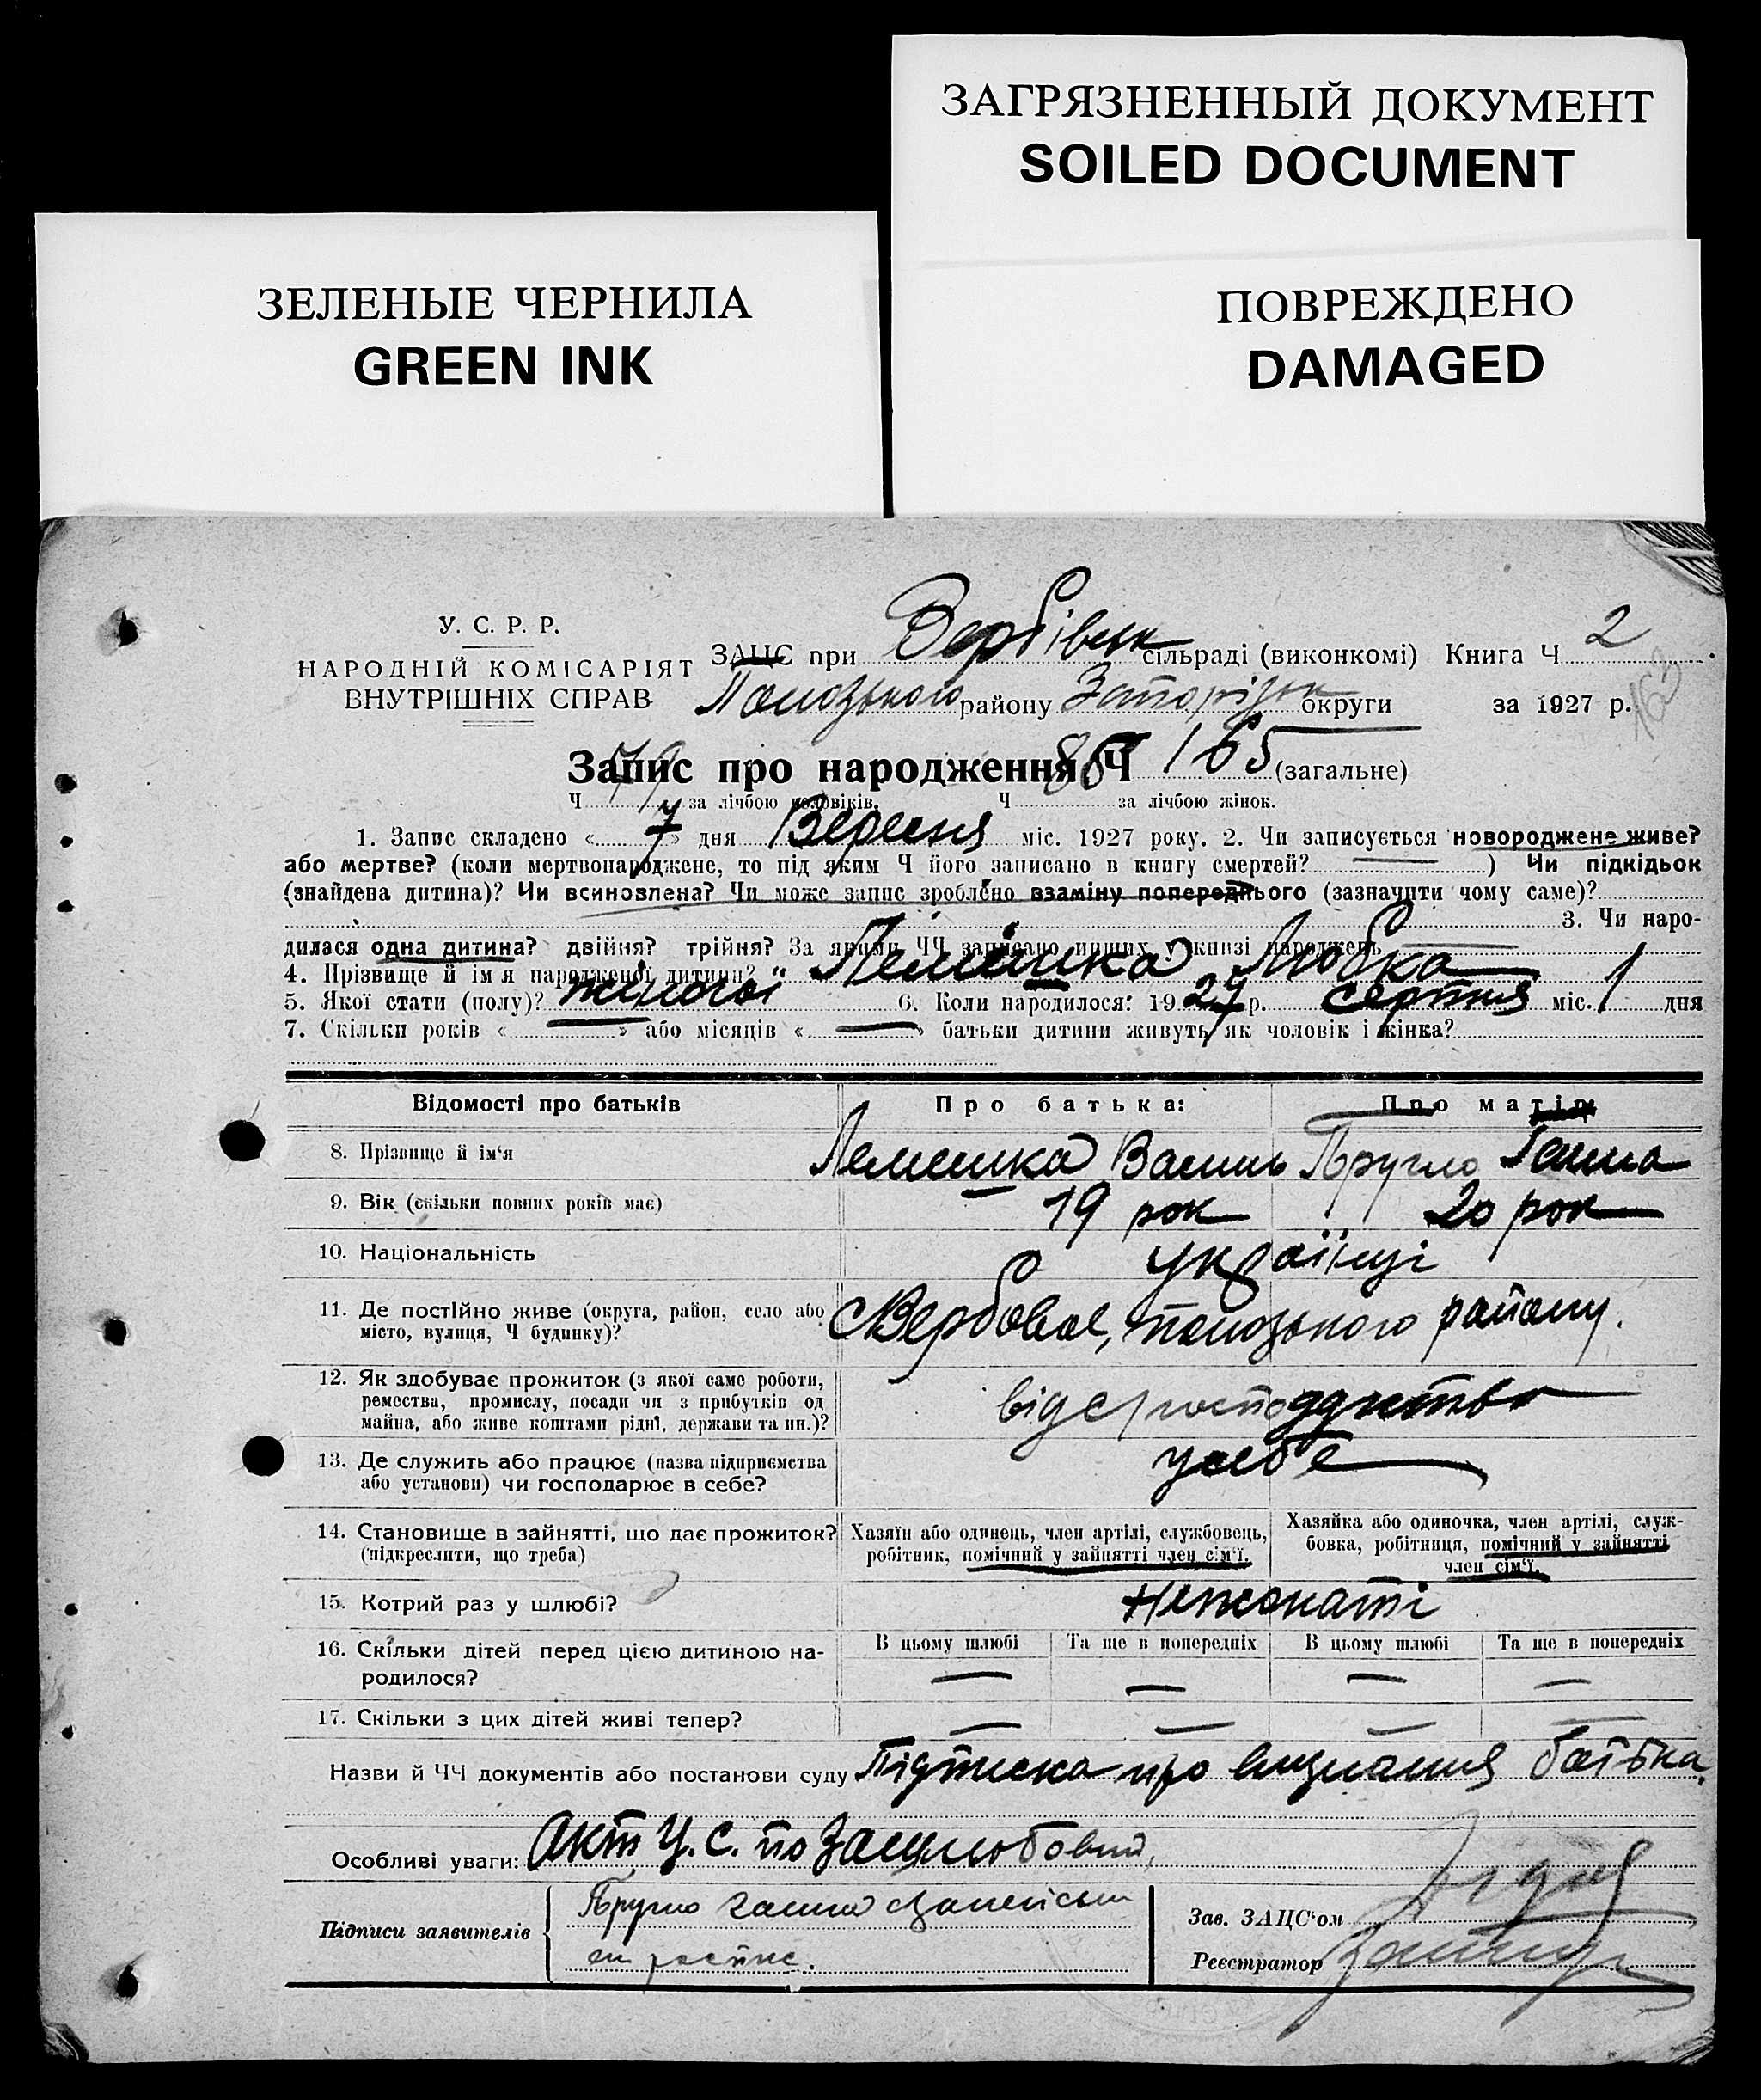 ЗАГРЯЗНЕННЫЙ ДОКУМЕНТ
SOILED DOCUMENT
ЗЕЛЕНЫЕ ЧЕРНИЛА
GREEN INK
ПОВРЕЖДЕНО
DAMAGED
У. С. Р. Р.
НАРОДНІЙ КОМІСАРІЯТ
ВНУТРІШНІХ СПРАВ
ЗАЦС при Вербівськ сільраді (виконкомі) Книга Ч 2
району Запорізьк округи за 1927 р. 163
Запис про народження Ч 165 (загальне)
Ч 79 за лічбою чоловіків. Ч 86 за лічбою жінок.
1. Запис складено « 7 » дня Вересня міс. 1927 року. 2. Чи записується новороджене живе?
або мертве? (коли мертвонароджене, то під яким Ч його записано в книгу смертей? — ) Чи підкідьок
(знайдена дитина)? Чи всиновлена? Чи може запис зроблено взаміну попереднього (зазначити чому саме)?
3. Чи наро-
дилася одна дитина? двійня? трійня? За якими ЧЧ записано инших у книзі народжень —
4. Прізвище й ім'я народженої дитини? Лемішка Любка
5. Якої стати (полу)? жіночої 6. Коли народилося: 1927 р. серпня міс. 1 дня
7. Скільки років « — » або місяців « — » батьки дитини живуть як чоловік і жінка?
Відомості про батьків Про батька: Про матір:
8. Прізвище й ім'я Лемешка Василь Пругло Ганна
9. Вік (скільки повних років має) 19 рок 20 рок
10. Національність українці
11. Де постійно живе (округа, район, село або
місто, вулиця, Ч будинку)? с Вербовое, району.
12. Як здобуває прожиток (з якої саме роботи,
ремества, промислу, посади чи з прибутків од
майна, або живе коштами рідні, держави та ин.)?
13. Де служить або працює (назва підприємства
або установи) чи господарює в себе? у себе
14. Становище в зайнятті, що дає прожиток?
(підкреслити, що треба)
Хазяїн або одинець, член артілі, службовець,
робітник, помічний у зайнятті член сім'ї.
Хазяйка або одиночка, член артілі, служ-
бовка, робітниця, помічний у зайнятті
член сім'ї.
15. Котрий раз у шлюбі? Нежонаті
16. Скільки дітей перед цією дитиною на-
родилося?
В цьому шлюбі Та ще в попередніх В цьому шлюбі Та ще в попередніх
— — — —
17. Скільки з цих дітей живі тепер? — — — —
Назви й ЧЧ документів або постанови суду Підписка про визнання батька.
Особливі уваги: Акт Ц.С. по
Підписи заявителів Пругло ганна
Зав. ЗАЦС'ом
Реєстратор